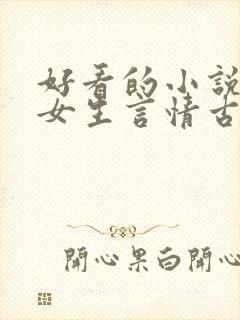 好看的小說
女生言情古
開心果白開心